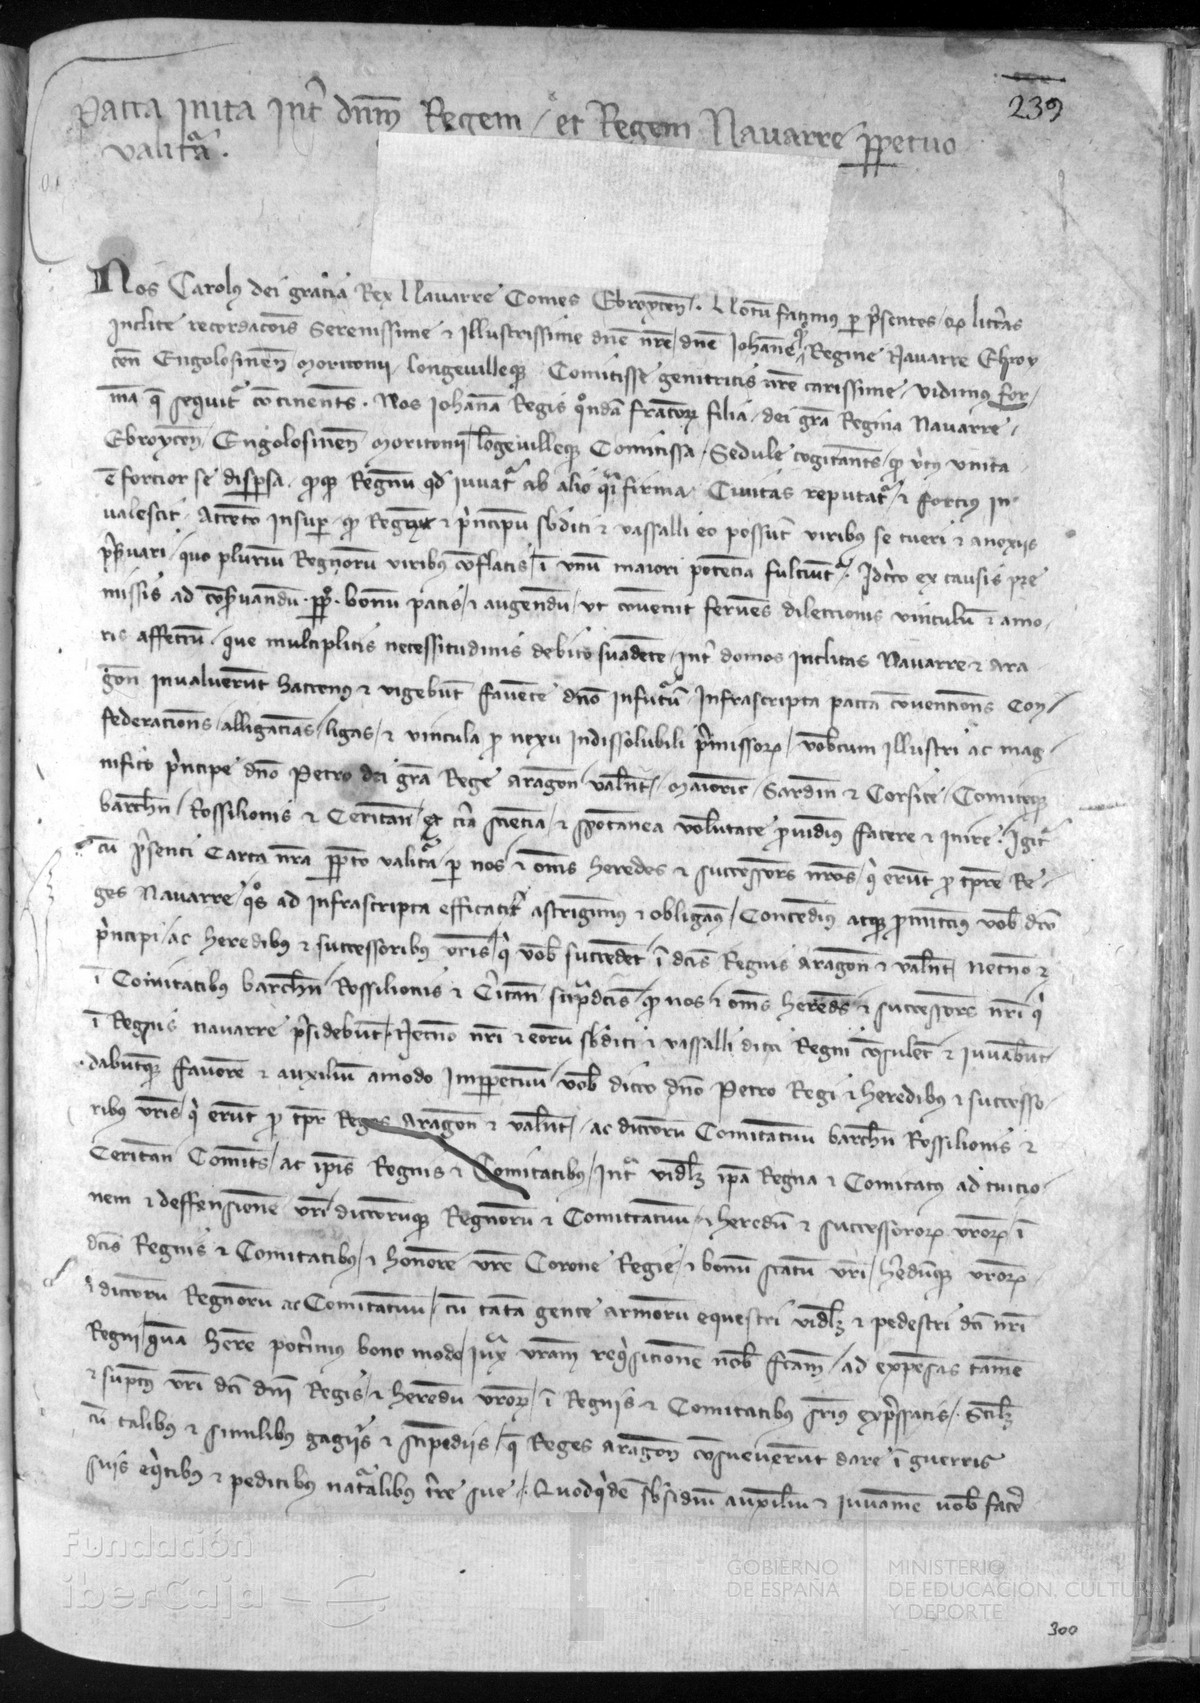 239
Pacta inita int dnm Regem et Regem Nauarre ppetuo
valitura.
Nos Carolus dei gratia Rex Nauarre Comes Ebroycen. Notum facimus per presentes qd litteras
inclite recordacois Serenissime et Illustrissime dne nre dne Johane Regine Nauarre Ebroy
cen Engolosinen moritonii longeuilleque Comitisse genitricis nre carissime vidimus for
ma q sequit continents. Nos Johana Regis qondam francor filia dei gra Regina Nauarre
Ebroycen Engolosinen moritonii longeuilleque Comitissa. Sedule cogitants qd vtus vnita
e forcior se dispsa Regnum qd iuuat ab alio firma Ciuitas reputat et forcius in
ualescit. Attento insuper qd Regum et principum sbditi et vassalli eo possunt viribus se tueri et
quo plurium Regnorum viribus conflatis i vnum maiori potencia fulciunt. Idcirco ex causis pre
missis ad conseruandum ppo bonum pacis et augendum vt conuenit feruens dileccionis vinculum et amo
ris affectum que multiplicis necessitudinis debito suadente int domos inclitas Nauarre et Ara
gon inualuerunt hactenus et vigebunt fauente dno infuturum infrascripta pacta conuentions con
federations alligancias ligas et vincula p nexu indissolubili pmissor vobcum illustri ac mag
nifico principe dno Petro dei gra Rege Aragon Valent Maioric Sardin et Corsice Comiteque
barchn Rossilionis et Ceritan ex cta sciecia et spotanea volutate prouidim facere et inire. Igit
cu psenti Carta nra ppto valitra p nos et oms heredes et successors nros q erunt p tpre Re
ges Nauarre qos ad infrascripta efficacit astringimus et obligam Concedim atque pmittim vob dco
principi ac heredibus et successoribus vris q vob succedent i dcis Regnis Aragon et valent necno et
i Comitatibus barchn Rossilionis et Critan supdcis qd nos et oms hereds et successors nri q
i Regnis nauarre psidebunt necno nri et eorum sbditi et vassalli dicti Regni consulent et iuuabunt
dabuntque fauorem et auxilium amodo Imppetuum vob dicto dno Petro Regi et heredibus et successo
ribus vris q erunt p tpr Reges Aragon et valent ac dictorum Comitatuum barchn Rossilionis et
Ceritan Comits ac ipis Regnis et Comitatibus int vidlz ipa Regna et Comitatus ad tuicio
nem et deffensionem vri dictorumque Regnorum et Comitatuum et heredum et successoror vror i
dcis Regnis et Comitatibus et honorem vre Corone Regie et bonum statum vri hedumque vror
i dictorum Regnorum ac Comitatuum cu tata gente armorum equestri vidlz et pedestri dci nri
Regni quam here poterimus bono modo iux vram requisitionem nob fcam ad expensas tamen
et suptus vri dci dni Regis et heredum vror i Regnis et Comitatibus expressatis. Scilz
cu talibus et similibus gagiis et stipendiis q Reges Aragon consueuerunt dare i guerris
suis eqitibus et peditibus natralibus tre sue. Quodqidem sbsidium auxilium et iuuamen vob facere
Fundación
iberCaja
GOBIERNO
DE ESPAÑA
MINISTERIO
DE EDUCACIÓN, CULTURA
Y DEPORTE
300